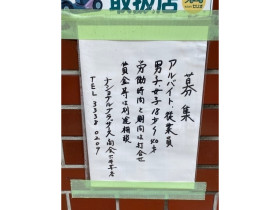 取扱店
募集
アルバイト、従業員
男子女子18才〜40才
労働時間と期間は打合せ
賃金等は別途相談
ナショナルブラザース商会
TEL 3338 0209